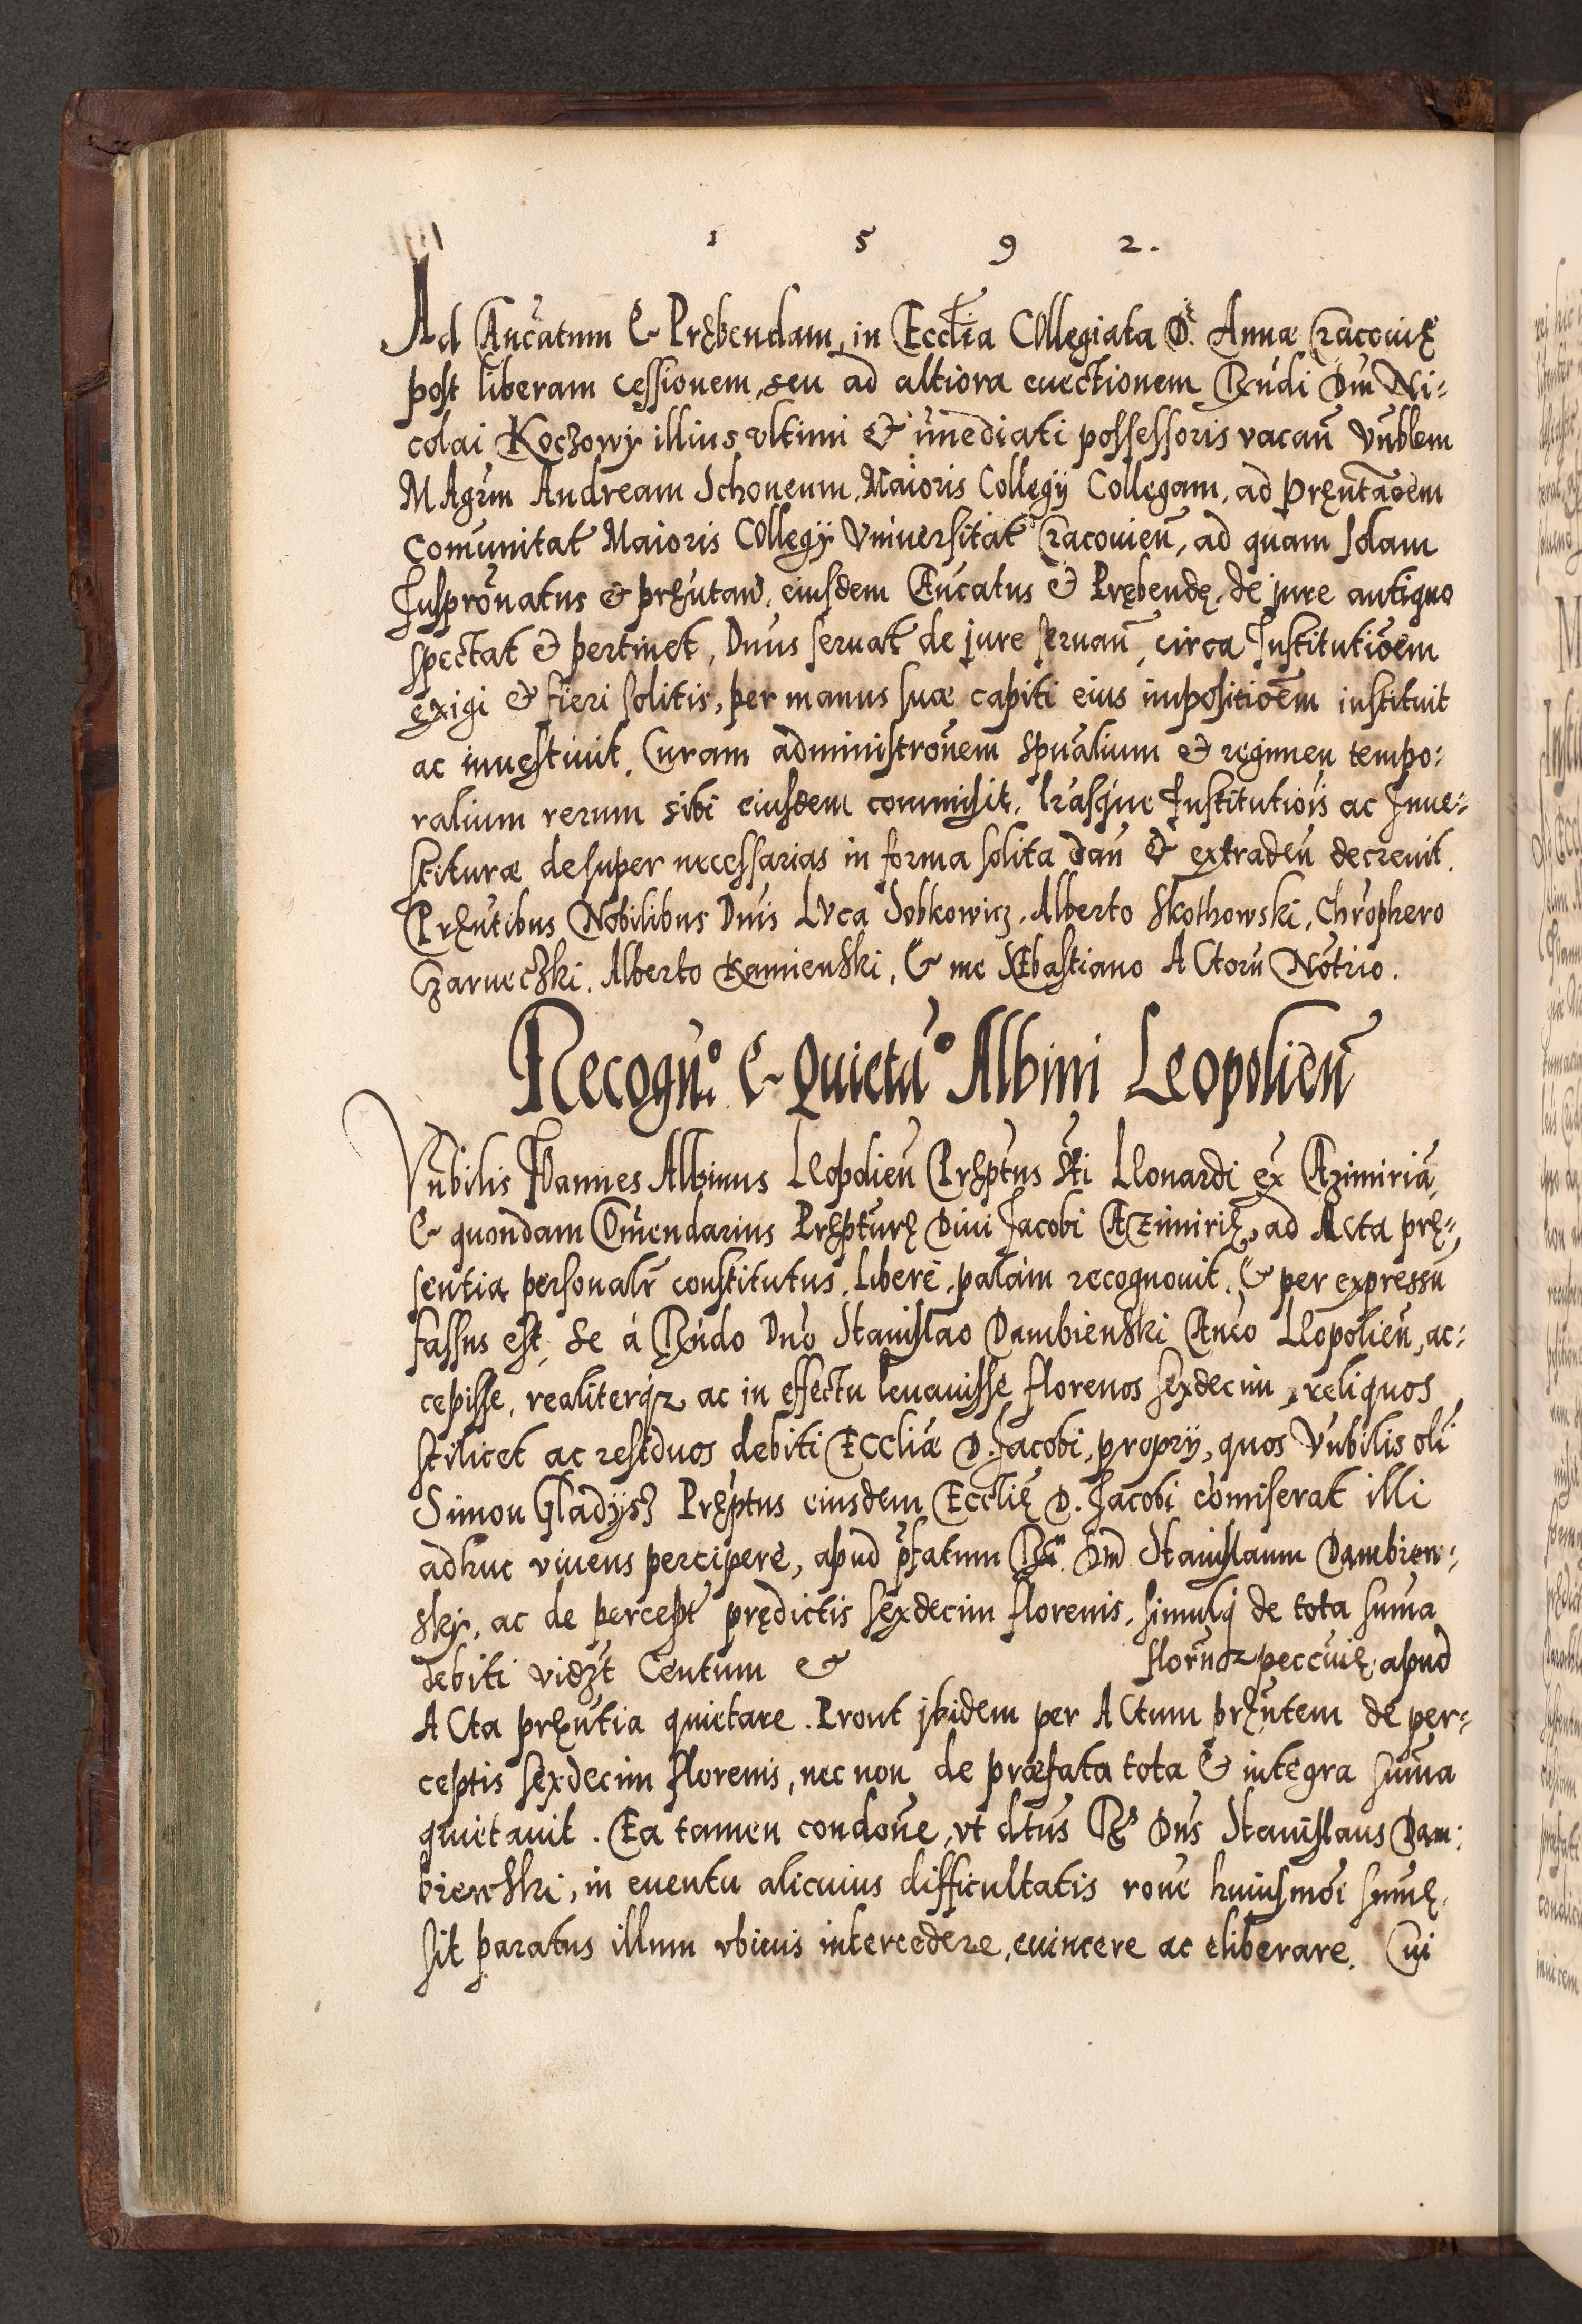 1 5 9 2.
Ad Cancatum & Prębendam, in Ecclia Collegiata D. Annæ Cracouię
post liberam cessionem, seu ad altiora euectionem Rndi Dni Ni=
colai Koczowy illius vltimi & imediati possessoris vacan̄ Vnblem
Magrm Andream Schoneum, Maioris Collegij Collegam, ad pręntaōem
comunitat Maioris Collegij Vniuersitat Cracouien̄, ad quam solam
Juspronatus & pręntan̄ eiusdem Cancatus & Prębendę, de jure antiquo
spectat & pertinet, Dnus seruat de jure seruan̄, circa Institutiōem
exigi & fieri solitis, per manus suæ capiti eius impositiōem instituit
ac inuestiuit. Curam administronem spualium & regimen tempo=
ralium rerum sibi eiusdem commisit, lrasque Institutiōis ac Inue=
stituræ desuper necessarias in forma solita dan̄ & extraden̄ decreuit.
Pręntibus Nobilibus Dnis Luca Sobkowicz, Alberto Skothowski, Chrophero
Czarneczki, Alberto Kamienski, & me Sebastiano Actorū Notrio.
Recogn.º & Quieta.º Albini Leopolien̄
Vnbilis Joannes Albinus Leopolien̄ Pręptus Sti Leonardi ex Cazimiria,
& quondam Comendarius Prępturę Diui Jacobi Cazimirię, ad Acta prę=
sentia personalr constitutus, liberè, palàm recognouit, & per expressū
fassus est, se à Rndo Dno Stanislao Dambienski Canco Leopolien̄, ac=
cepisse, realiterqz ac in effectu leuauisse florenos sexdecim, reliquos
scilicet ac residuos debiti Eccliæ D. Jacobi, proprij, quos Vnbilis oli
Simon Gladysz Pręptus eiusdem Ecclię D. Jacobi comiserat illi
adhuc viuens percipere, apud pfatum Rn. Dm̄ Stanislaum Dambien=
sky, ac de percept prędictis sexdecim florenis, simulq de tota suma
debiti vidzt Centum & florūoz peccuię apud
Acta pręntia quietare. Prout jbidem per Actum pręntem de per=
ceptis sexdecim florenis, nec non de præfata tota & integra suma
quietauit. Ea tamen condone, vt dtus Rs Dns Stanislaus Dam=
bienski, in euentu alicuius difficultatis rone huiusmōi sumę,
sit paratus illum vbiuis intercedere, euincere ac eliberare. Cui